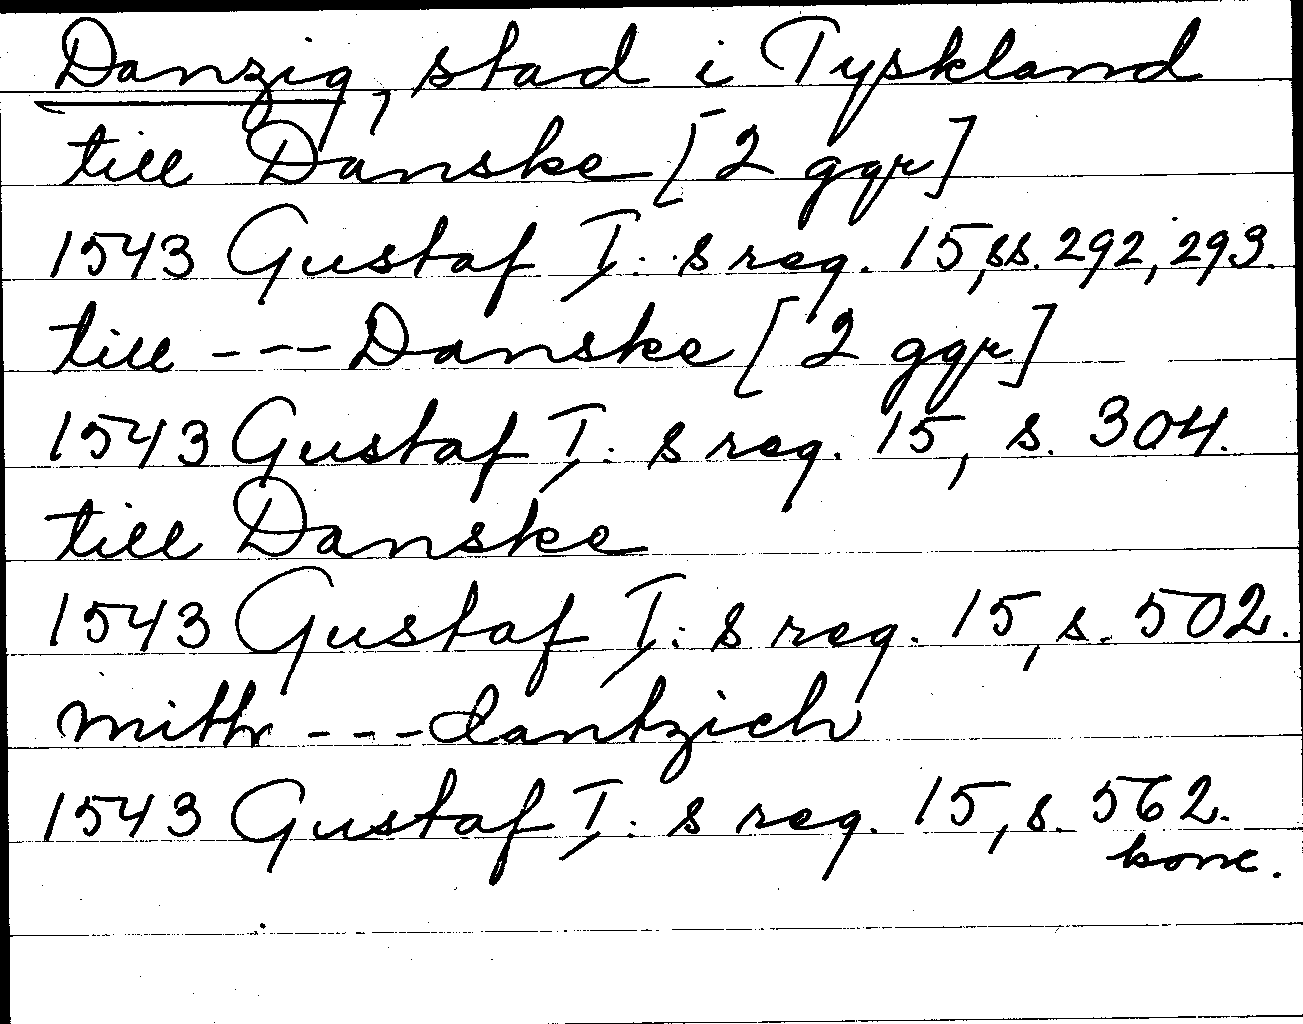 Danzig, stad i Tyskland
till Danske [2 ggr]
1543 Gustaf I:s reg. 15, ss. 292, 293.
till --- Danske [2 ggr]
1543 Gustaf I:s reg. 15, s. 304.
till Danske
1543 Gustaf I:s reg. 15, s. 502.
mith --- dantzich
1543 Gustaf I:s reg. 15, s. 562.
konc.